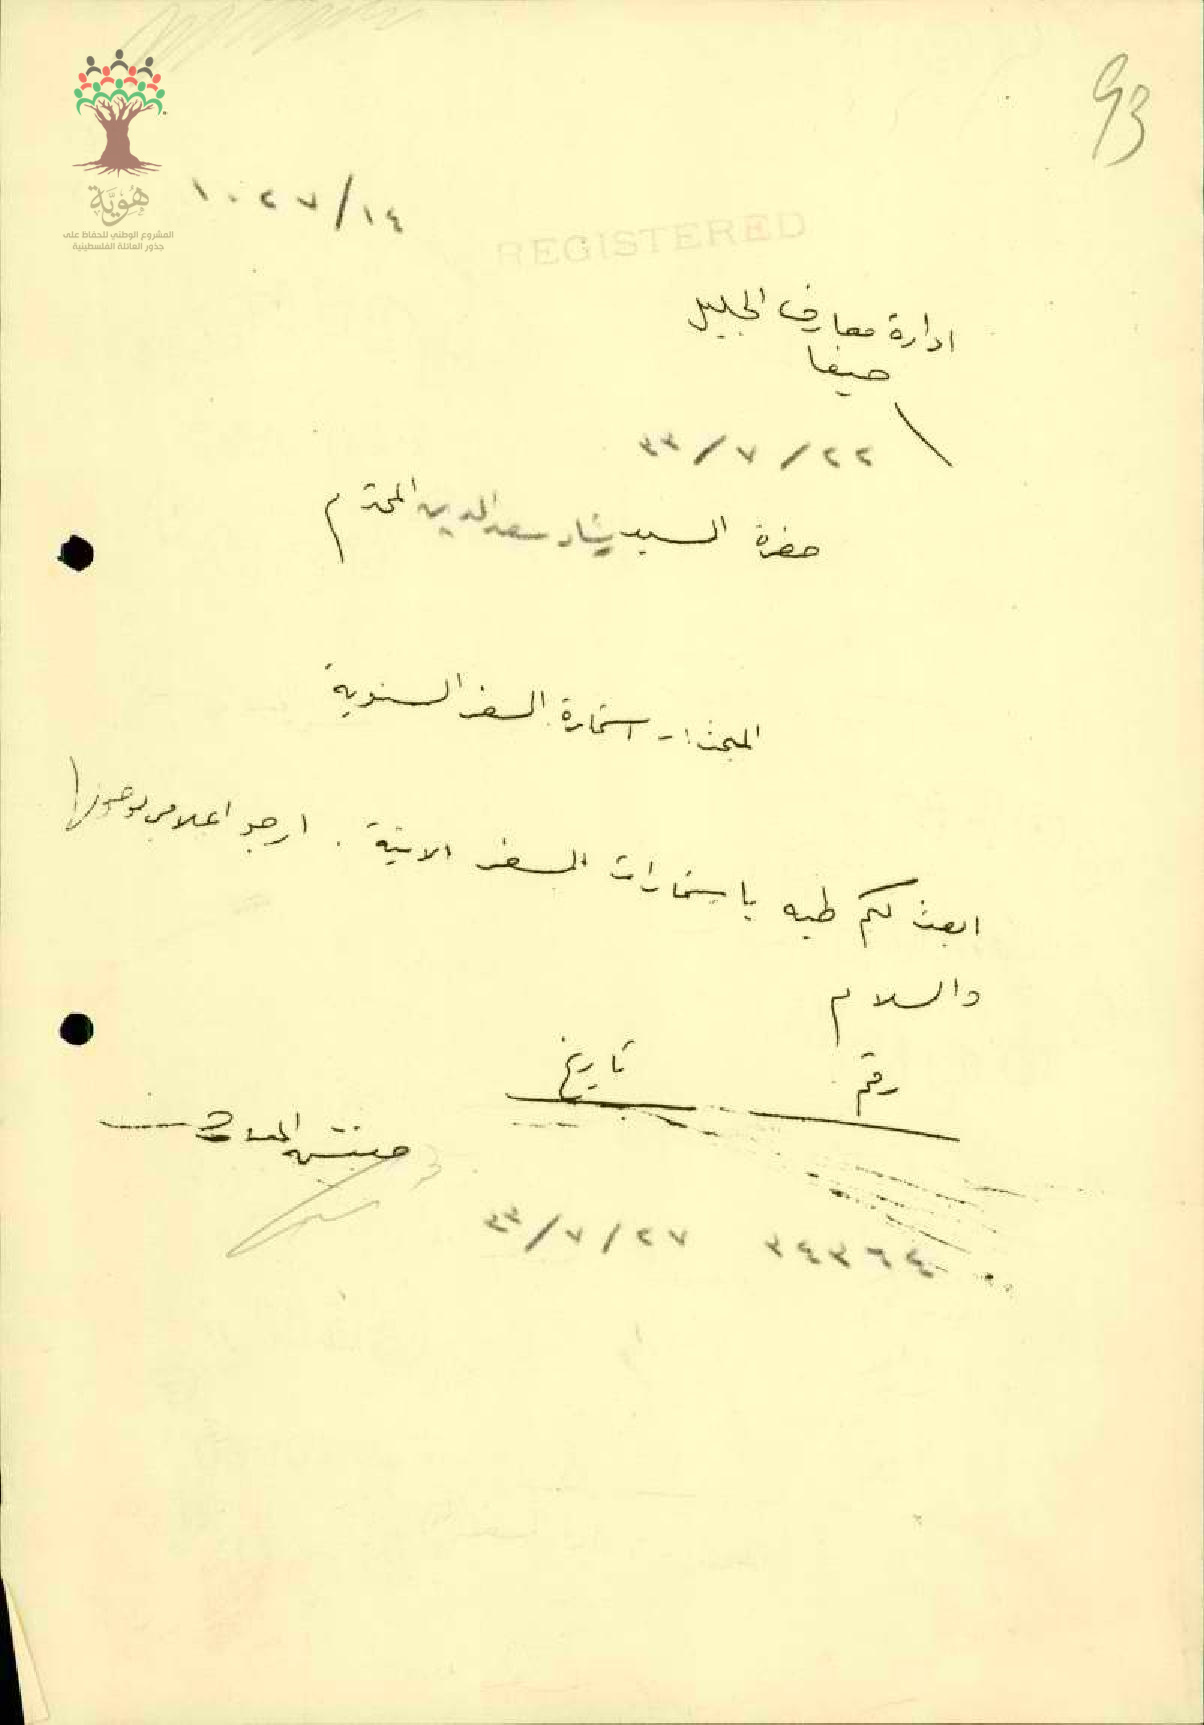 93
هُوِيَّة
المشروع الوطني للحفاظ على
جذور العائلة الفلسطينية
١٠٢٧/١٤
REGISTERED
ادارة معارف الجليل
حيفا
٢٢/٧/٣٣
حضرة السيد رشاد سعد الدين المحترم
المبحث :- استمارة السفر السنوية
ابعث لكم طيه باستمارات السفر الاتية . ارجو اعلامي بوصولها
والسلام
رقم تاريخ
مفتش المعارف
٢٧/٧/٣٣